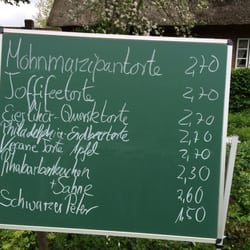 Mohnmarzipantorte 2,70
Toffifeetorte 2,70
Eierlikör-Quarktorte 2,70
Philadelphia-Erdbeertorte 2,70
Vegane Torte Apfel 2,70
Rhabarberkuchen 2,30
+ Sahne 2,60
Schwarzer Peter 1,50